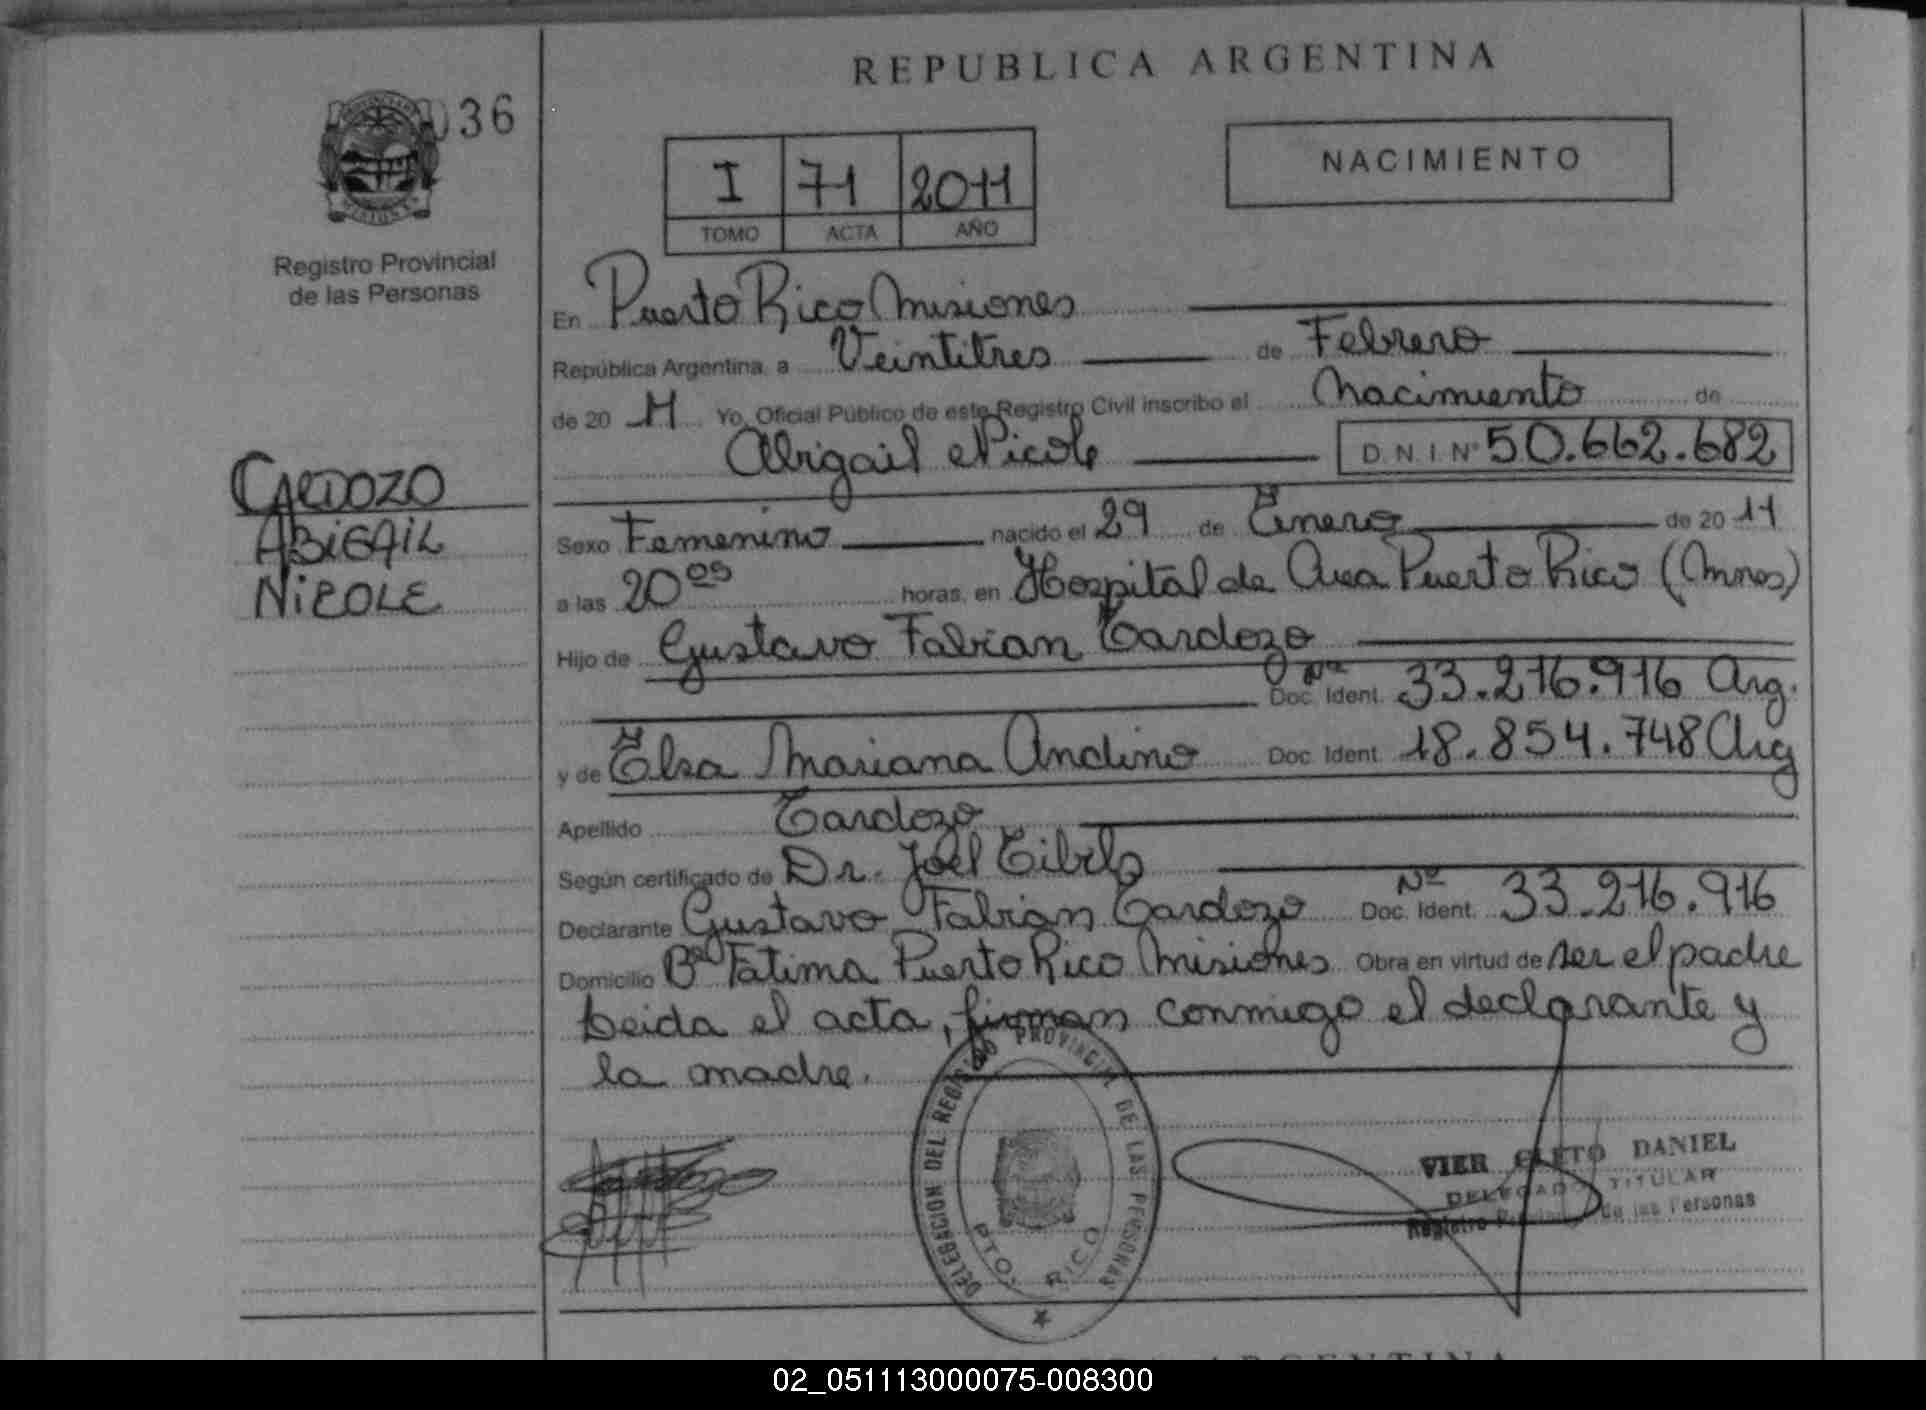 REPUBLICA ARGENTINA
036
I 71 2011
TOMO ACTA AÑO
NACIMIENTO
Registro Provincial
de las Personas
En Puerto Rico Misiones
República Argentina, a Veintitres de Febrero
de 20 11 Yo, Oficial Público de este Registro Civil inscribo el Nacimiento de
Abigail Nicole D.N.I. Nº 50.662.682
CARDOZO
ABIGAIL
NICOLE
Sexo Femenino nacido el 29 de Enero de 20 11
a las 20 05 horas, en Hospital de Area Puerto Rico (Mnes)
Hijo de Gustavo Fabian Cardozo
Nº Doc. Ident. 33.216.916 Arg.
y de Elsa Mariana Andino Doc. Ident. 18.854.748 Arg
Apellido Cardozo
Según certificado de Dr. Joel
Declarante Gustavo Fabian Cardozo Nº Doc. Ident. 33.216.916
Domicilio Bº Fatima Puerto Rico Misiones Obra en virtud de ser el padre
Leida el acta, firman conmigo el declarante y
la madre.
DELEGACION DEL REGISTRO PROVINCIAL DE LAS PERSONAS
PTO. RICO
VIER CLETO DANIEL
DELEGADO TITULAR
Registro Provincial de las Personas
02_051113000075-008300